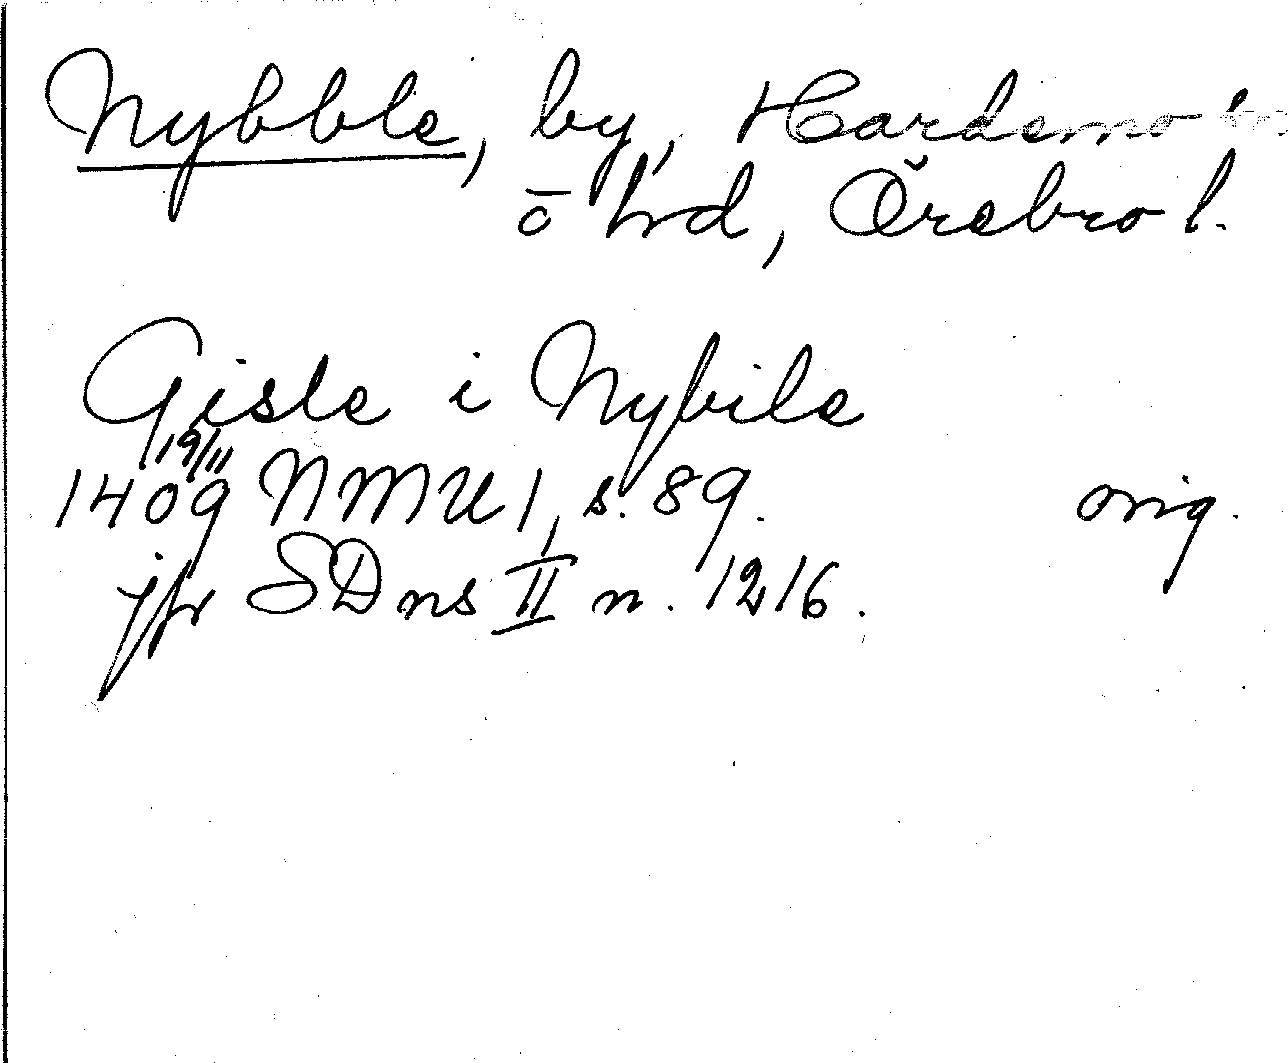 Nybble, by, Hardemo
o hd, Örebro l.
Gisle i Nybile
19/11
1409 NMU 1, s. 89. orig.
jfr SDns II n. 1216.